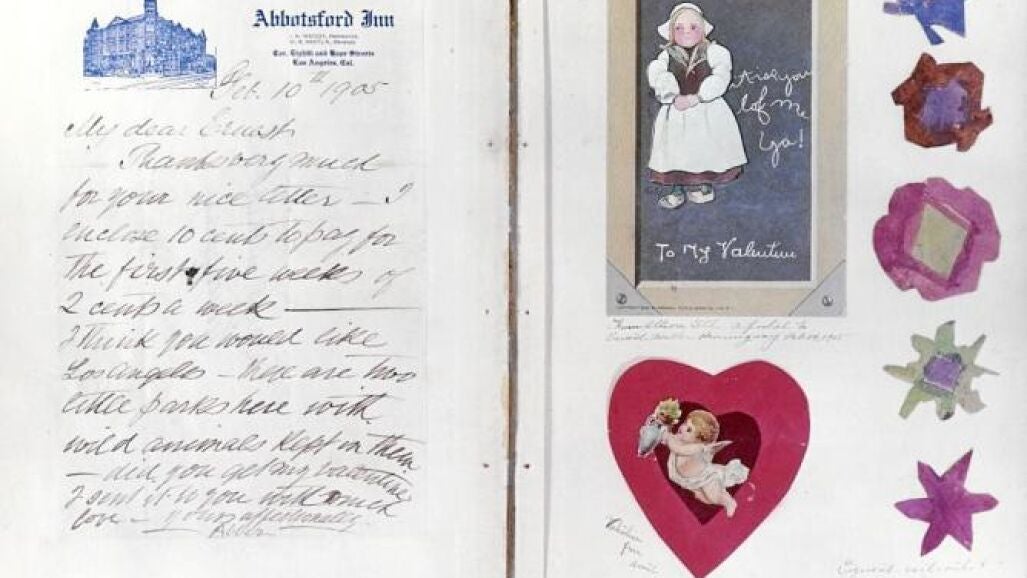 Abbotsford Inn
Cor. Eighth and Hope Streets
Los Angeles, Cal.
Feb. 10th 1905
My dear Ernest
Thanks very much
for your nice letter — I
enclose 10 cents to pay for
the first five weeks of
2 cents a week —
I think you would like
Los Angeles — there are two
little parks here with
wild animals kept in them
— did you get my valentine
I sent it to you with much
love — yours affectionately
Ask you
lof me
Ya!
To My Valentine